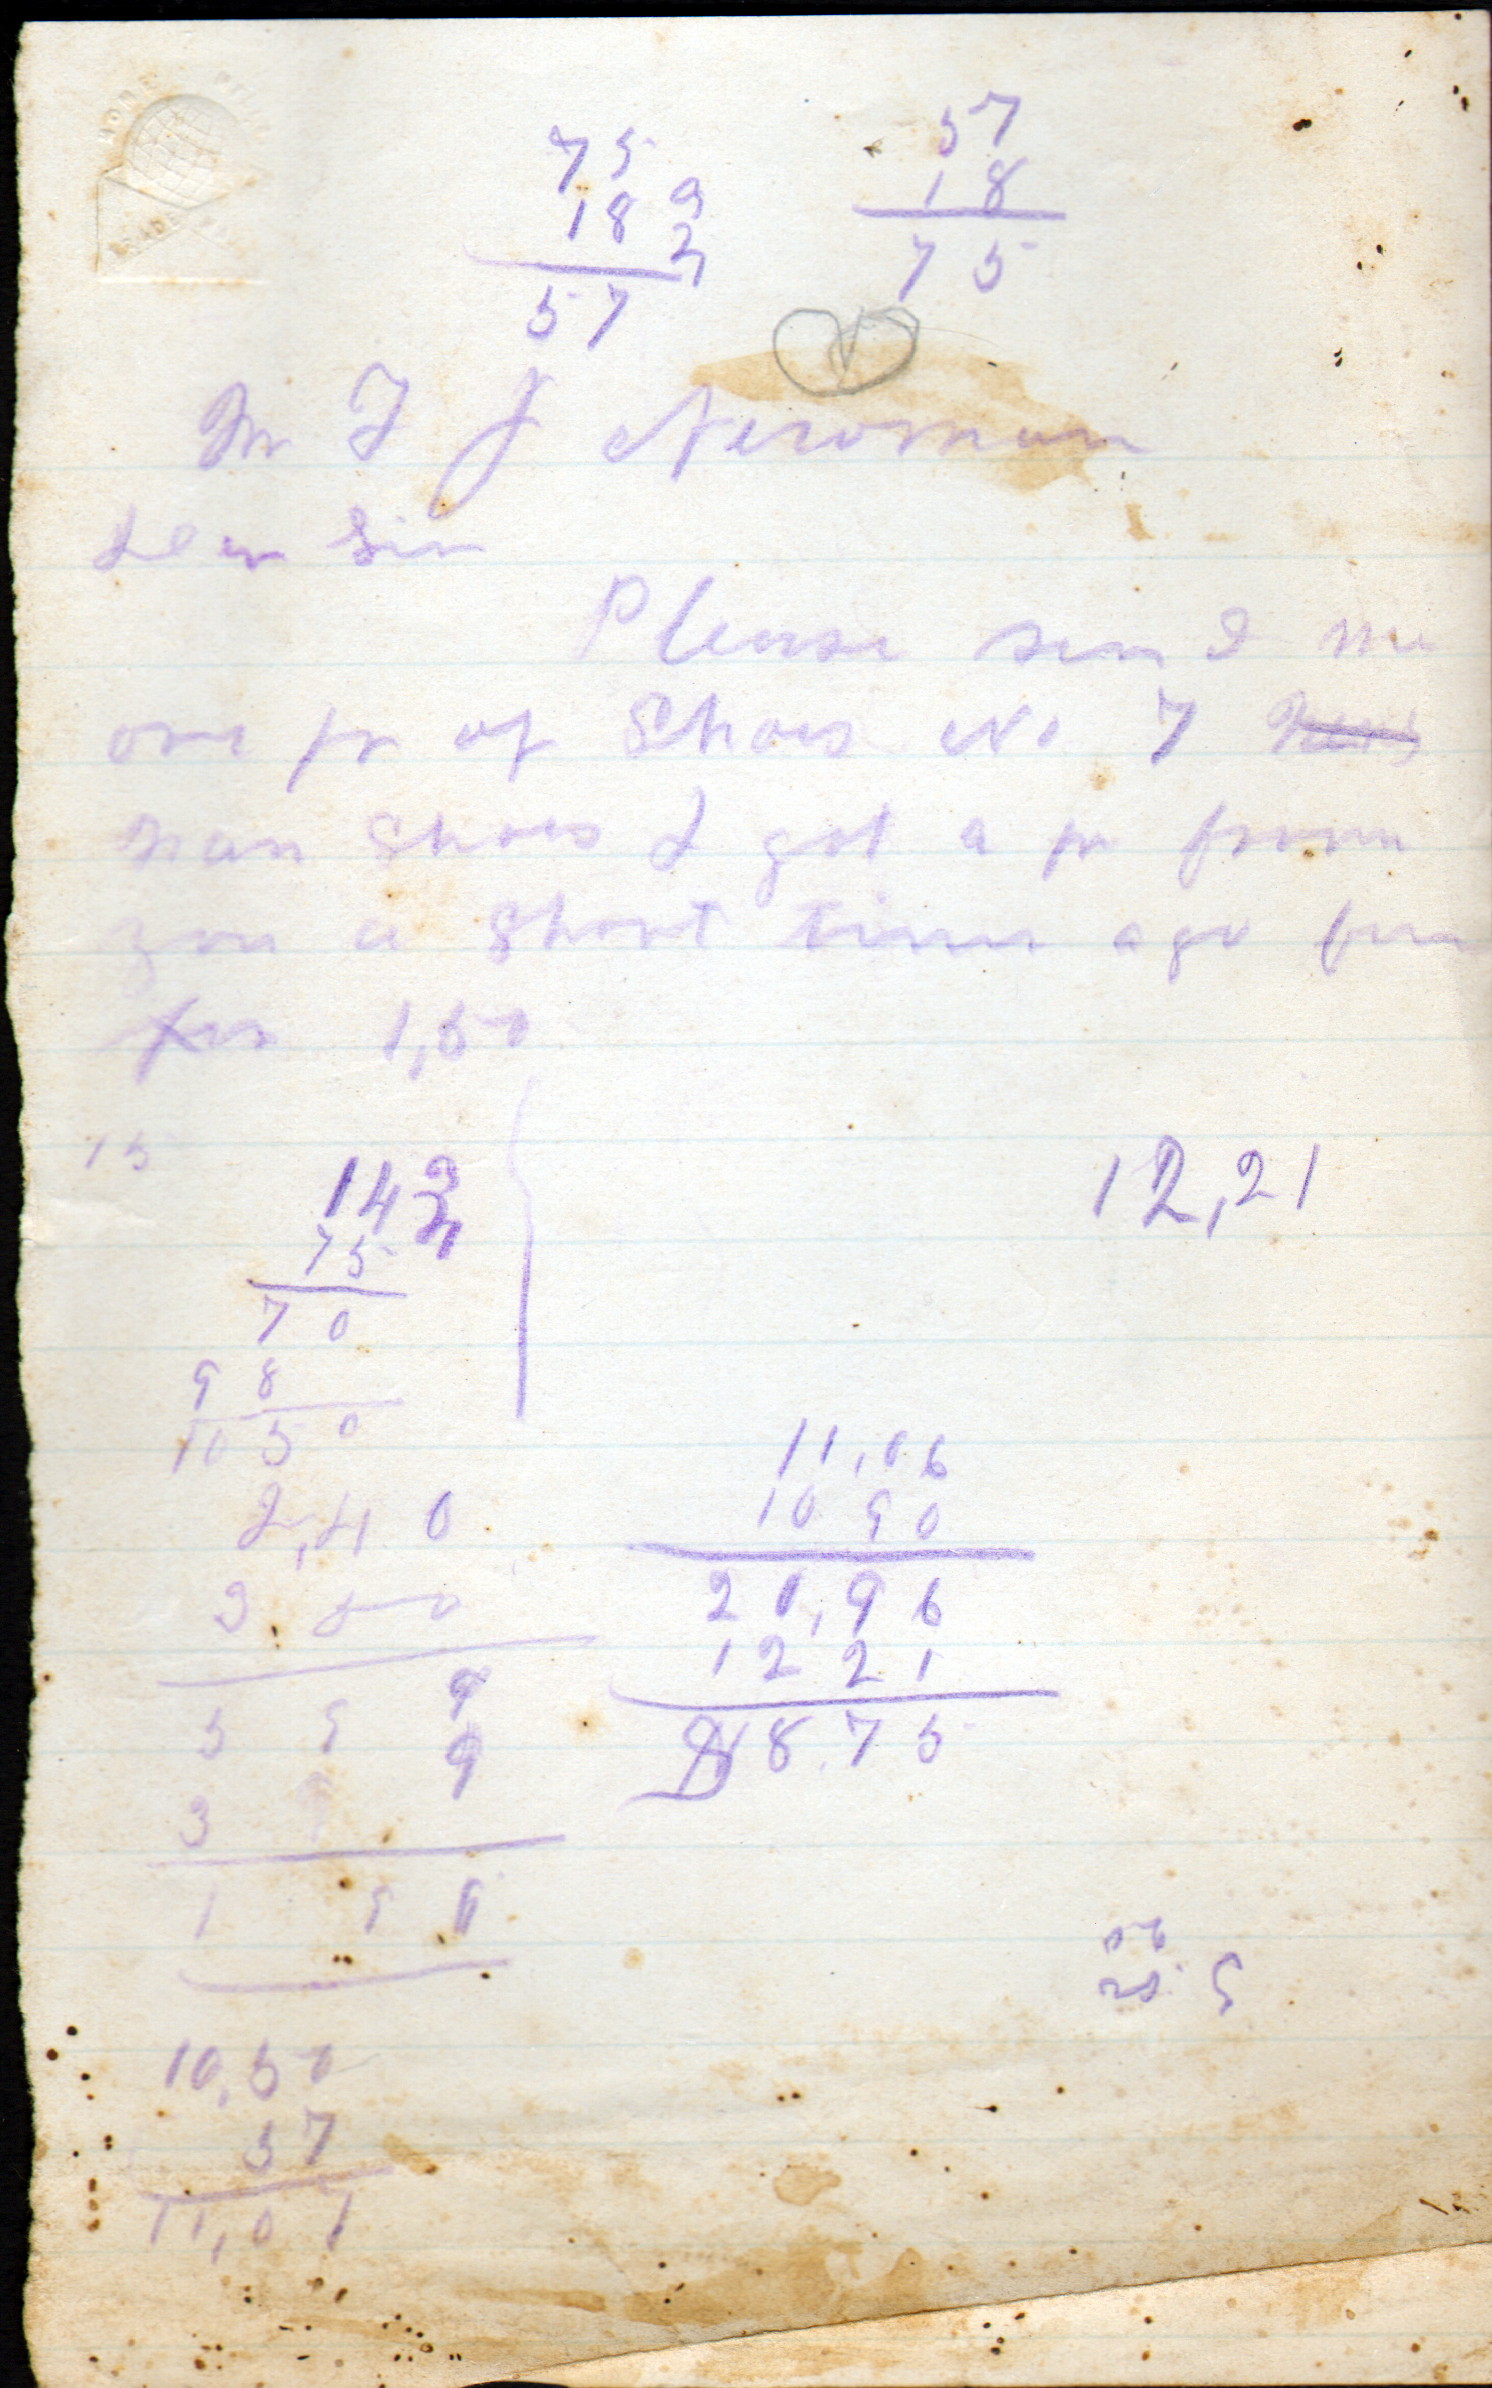 75
57
18 9
18
2
57
75
Mr T J Newman
Dear Sir
Please send me
one pr of Shoes No 7
man Shoes I got a pr from
you a Short time ago
for 1,50
15
14
12,21
75
70
98
1050
11,06
2,40
10 90
3
21,96
12 21
5 9 9
9
8.75
3
1 9
25 9
10,50
57
11,07